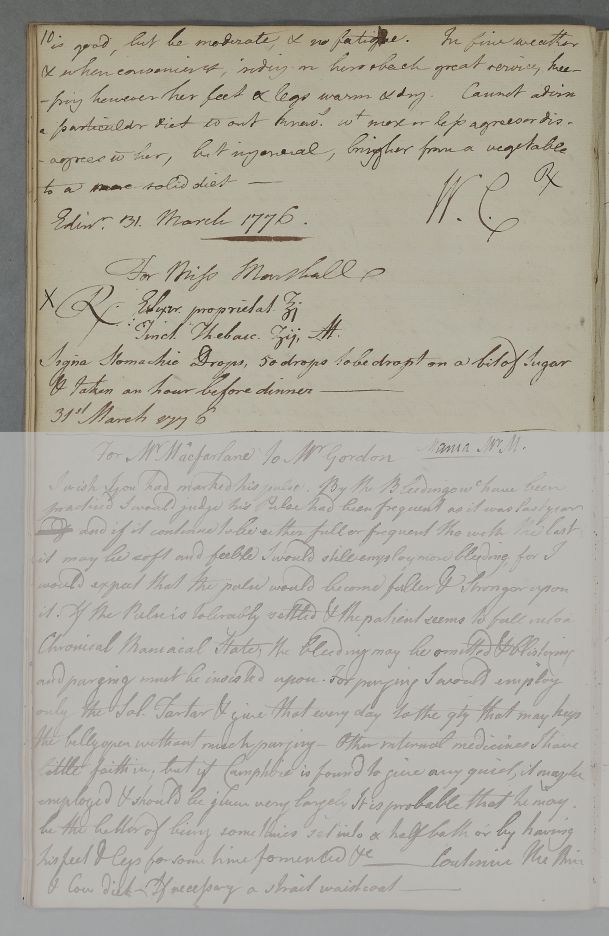 10 is good, but be moderate, & no fatigue. In fine weather
& when convenient, riding on horseback great service, kee-
-ping however her feet & legs warm & dry. Cannot
a particular diet wt more or less agrees or dis-
-agrees wt her, but in general, bring her from a vegetable
to a solid diet —
W. C.
Edinr. 31. March 1776.
For Miss Marshall
X Rx Elixir. proprietat. ℥j
Tinct. Thebaic. ʒij, M.
Signa Stomachic Drops, 50 drops to be dropt on a bit of Sugar
& taken an hour before dinner —
31st March 1776
For Mr. Macfarlane to Mr Gordon Mania Mr. M.
I wish you had marked his pulse. By the Bleedings wc have been
practised I would judge his Pulse had been frequent as it was last year
and if it continue to be either full or frequent tho with the last
it may be soft and feeble I would still employ more bleeding for I
would expect that the pulse would become fuller & stronger upon
it. If the Pulse is tolerably settled & the patient seems to fall into a
Chronical Maniacal State, the bleeding may be omitted & blistering
and purging must be insisted upon. For purging I would employ
only the Sal. Tartar & give that every day to the qty that may keep
the belly open without much purging — Other internal medicines I have
little faith in, but if Camphire is found to give any quiet, it may be
employed & should be given very largely. It is probable that he may
be the better of being sometimes set into a half bath or by having
his feet & legs for some time fomented &c — Continue the thin
& low diet — If necessary a strait waistcoat —